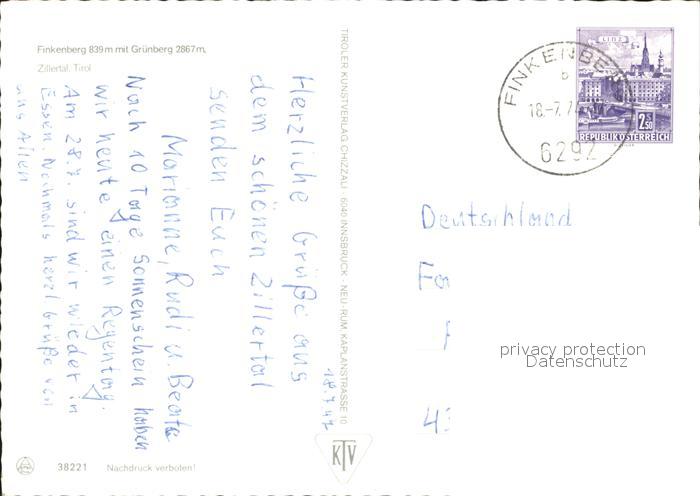 Finkenberg 839 m mit Grünberg 2867 m,
Zillertal, Tirol
Herzliche Grüße aus
dem schönen Zillertal
senden Euch
Marianne, Rudi u. Beate
Nach 10 Tage Sonnenschein haben
wir heute einen Regentag.
Am 28.7. sind wir wieder in
Essen. Nochmals herzl. Grüße von
uns Allen
38221 Nachdruck verboten!
TIROLER KUNSTVERLAG CHIZZALI · 6040 INNSBRUCK NEU-RUM, KAPLANSTRASSE 10
KTV
FINKENBE
b
18.-7.7
6292
LINZ
2.50
REPUBLIK ÖSTERREICH
Deutschland
privacy protection
Datenschutz